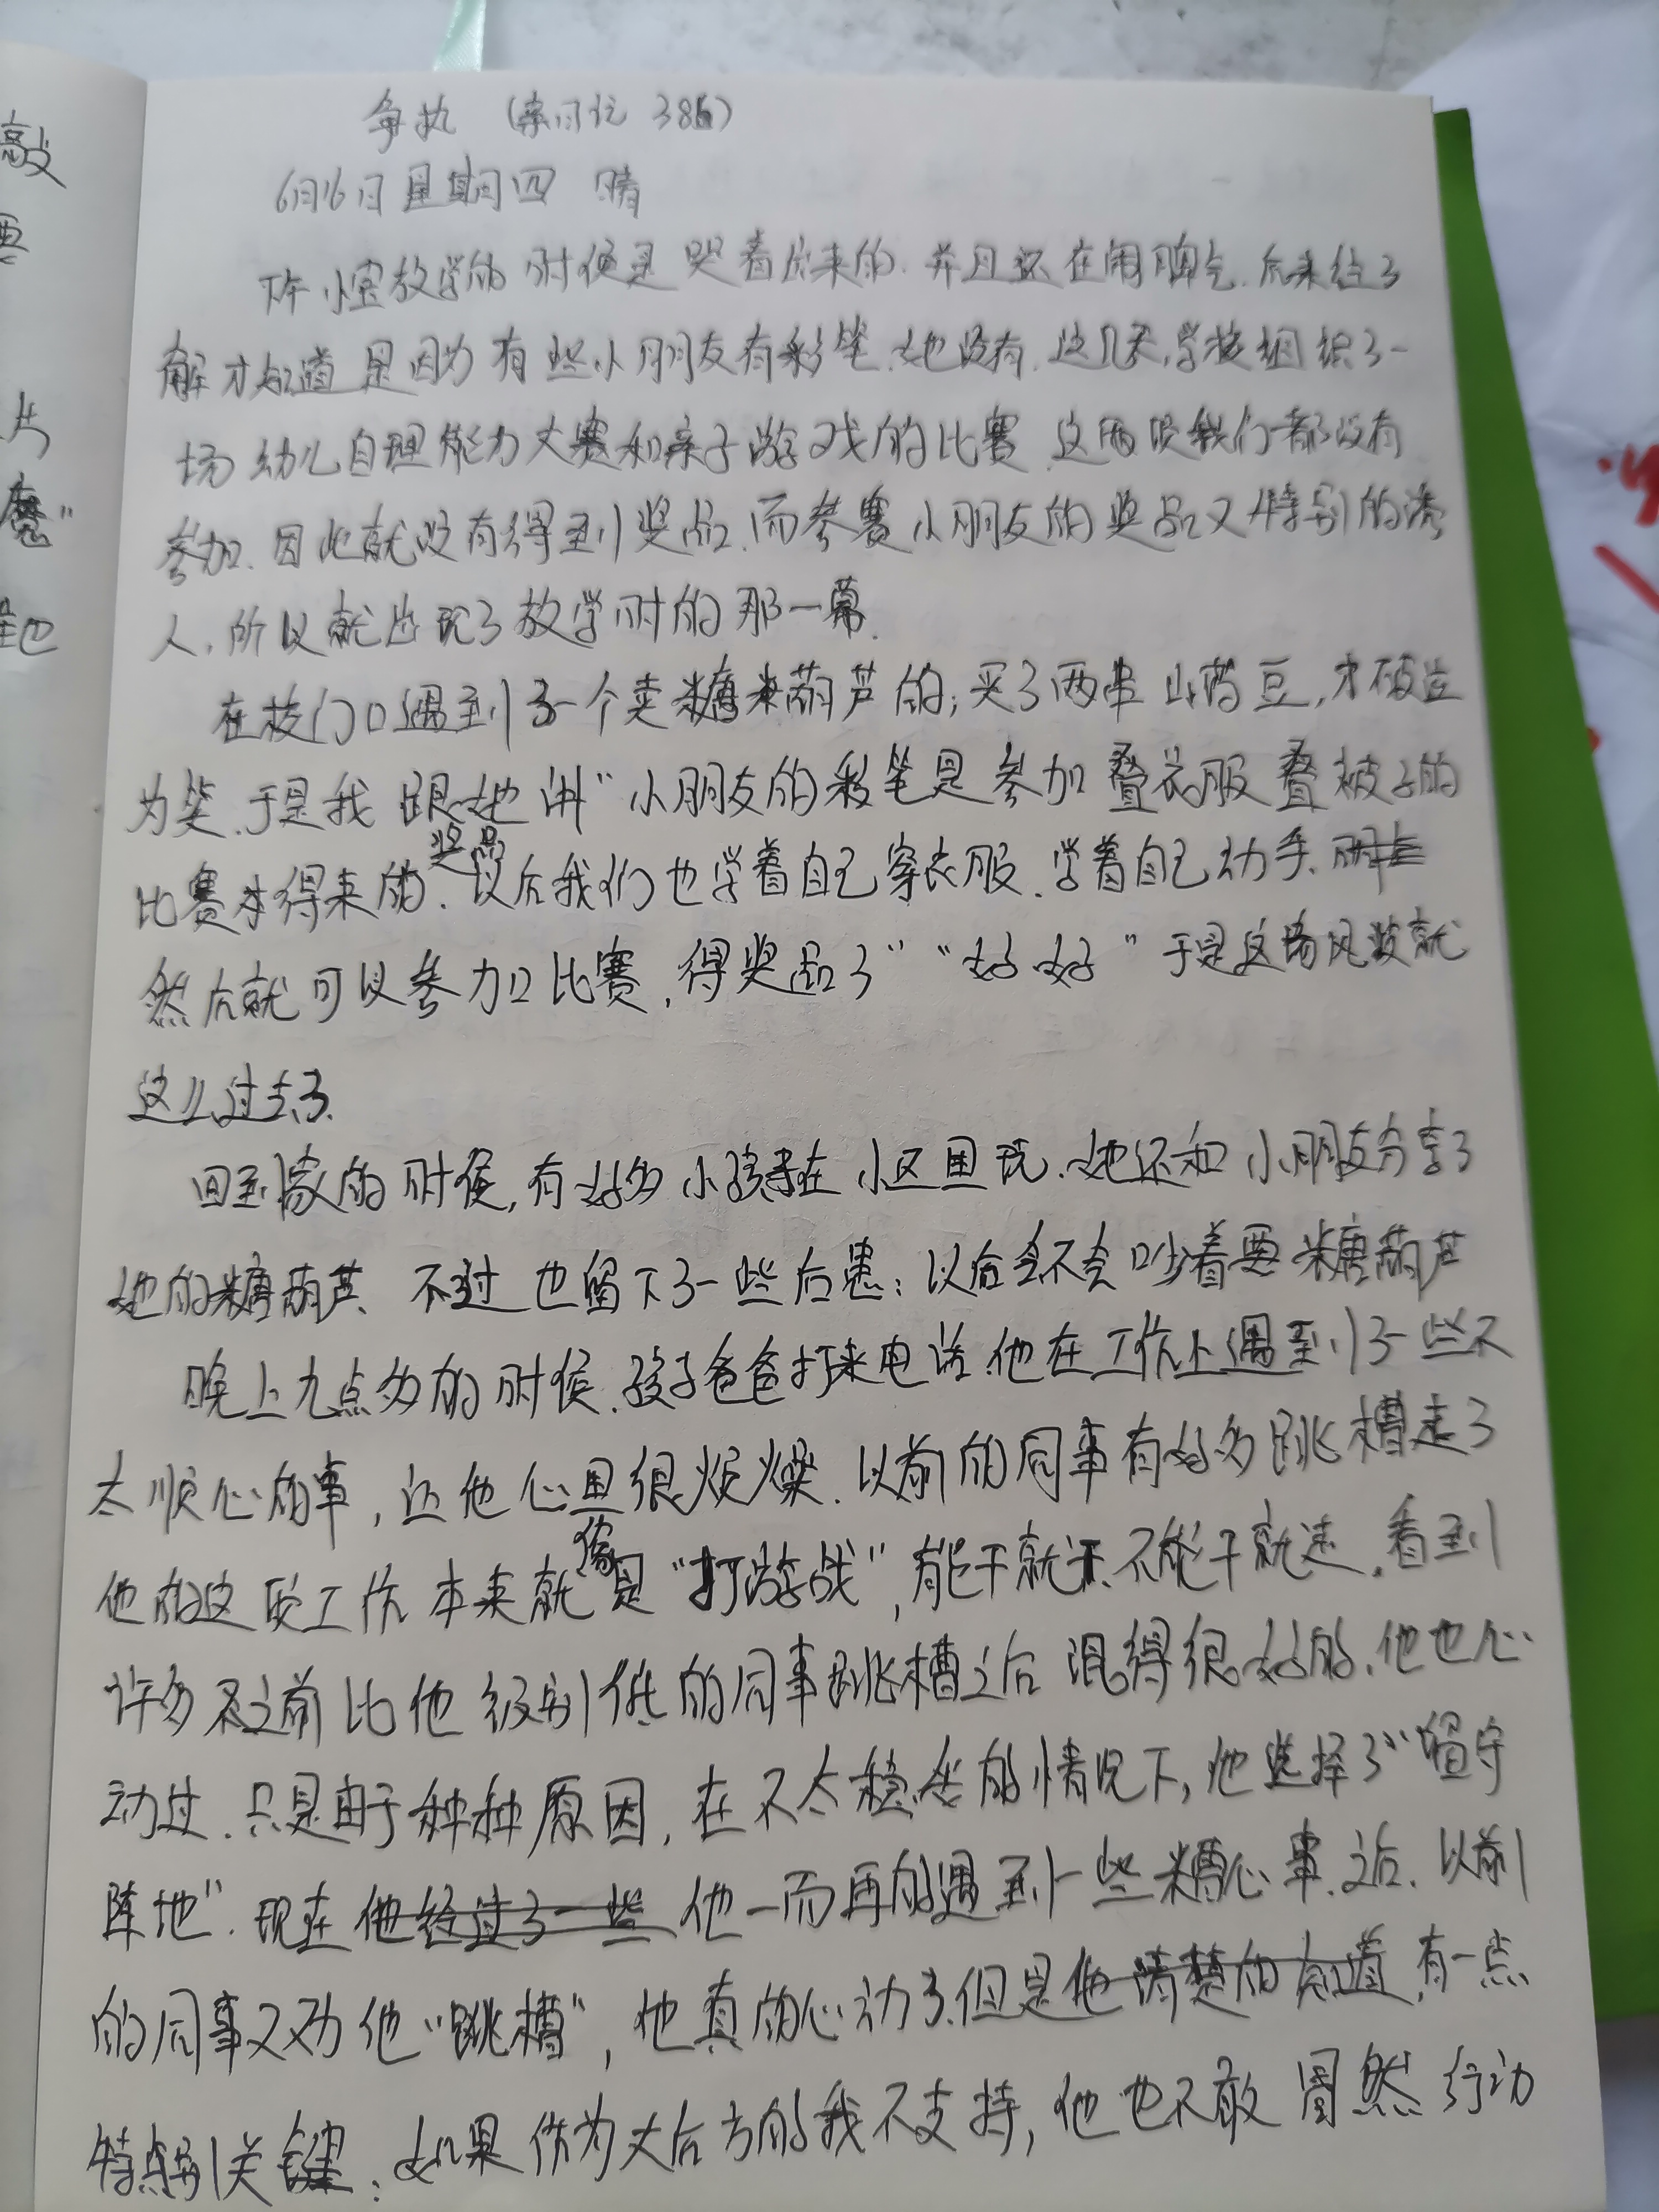 争执 (亲日记 386)
6月16日 星期四 晴
下午小宝放学的时候是哭着出来的.并且还在闹脾气.后来经了
解才知道是因为有些小朋友有彩笔.她没有.这几天,学校组织了一
场幼儿自理能力大赛和亲子游戏的比赛.这两项我们都没有
参加.因此就没有得到奖品.而参赛小朋友的奖品又特别的诱
人.所以就出现了放学时的那一幕.
在校门口遇到了一个卖糖葫芦的;买了两串山药豆,才破泣
为笑.于是我跟她讲"小朋友的彩笔是参加叠衣服叠被子的
比赛得来的奖品.以后我们也学着自己穿衣服.学着自己动手.
然后就可以参加比赛,得奖品了""好好"于是这场风波就
这么过去了.
回到家的时候,有好多小孩在小区里玩.她还和小朋友分享了
她的糖葫芦.不过也留下了一些后患:以后会不会吵着要糖葫芦
晚上九点多的时候.孩子爸爸打来电话.他在工作上遇到了一些不
太顺心的事,让他心里很烦燥.以前的同事有好多跳槽走了
他的这项工作本来就像是"打游战",有能干就干.不能干就走.看到
许多之前比他级别低的同事跳槽之后混得很好的.他也心
动过.只是由于种种原因,在不太稳妥的情况下,他选择了"留守
阵地".现在他经过了一些他一而再的遇到一些糟心事.之后.以前
的同事又劝他"跳槽",他真的心动了.但是他清楚的知道,有一点
特别关键:如果作为大后方的我不支持,他也不敢冒然行动